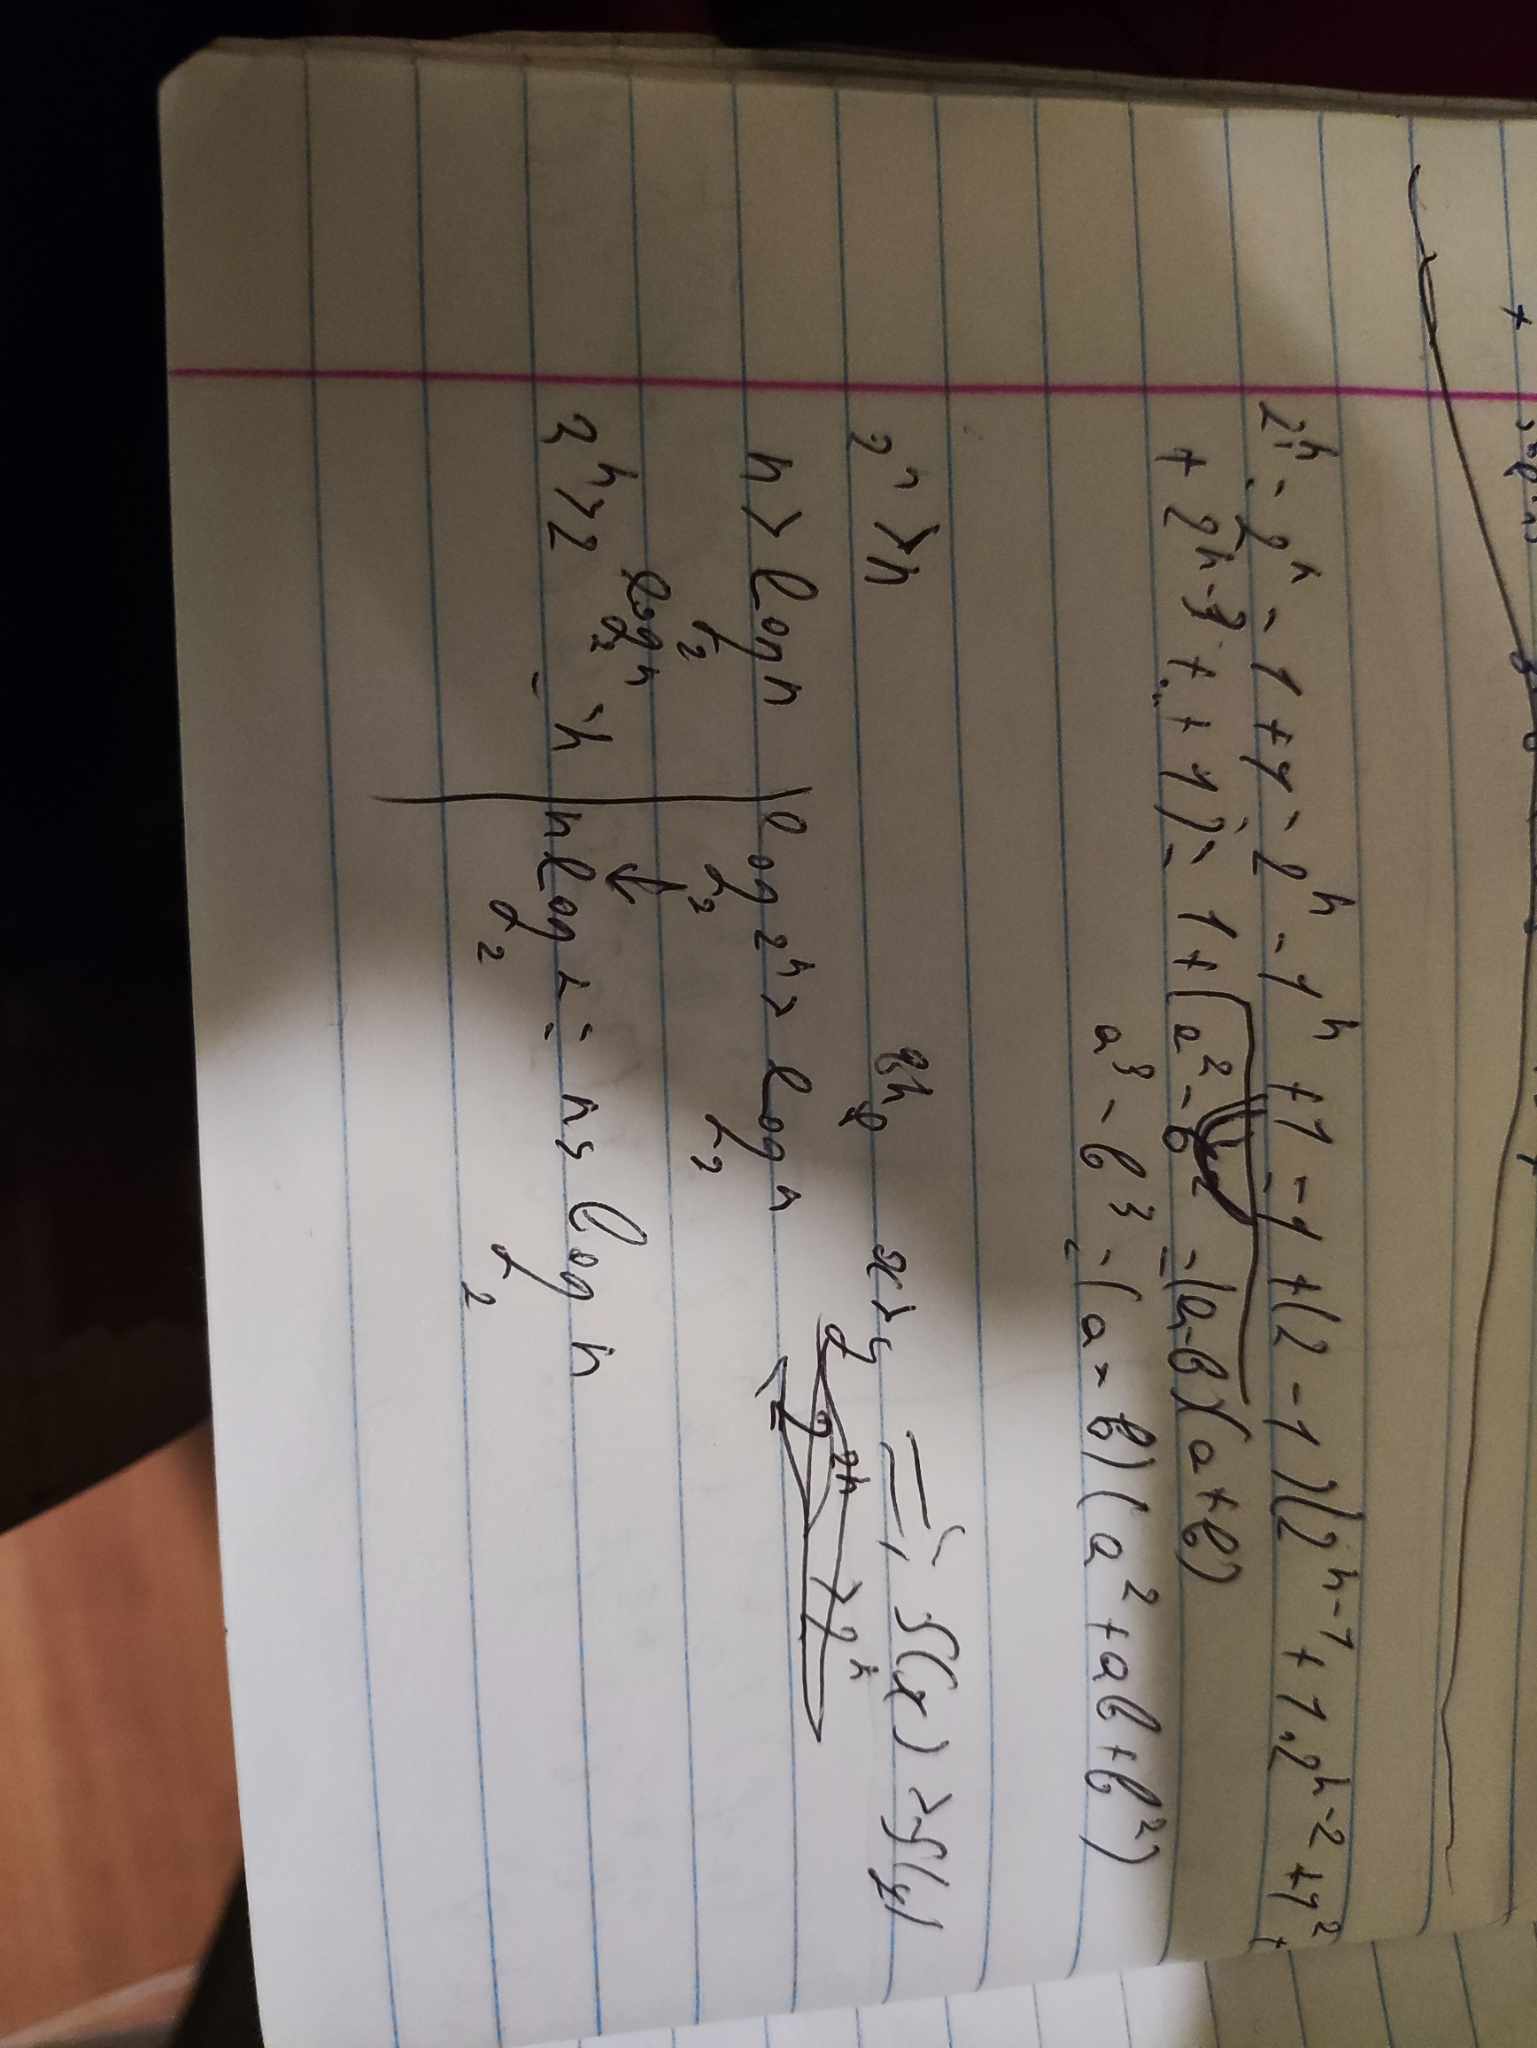 2ⁿ = 2ⁿ - 1 + 1 = 2ⁿ - 1ⁿ + 1 = 1 + (2 - 1)(2ⁿ⁻¹ + 1·2ⁿ⁻² + 1² +
+ 2ⁿ⁻³ + ... + 1) = 1 + (a² - b² = (a-b)(a+b)
a³ - b³ = (a - b)(a² + ab + b²)
2ⁿ > n x > y => f(x) > f(y)
2ⁿ > 2ⁿ
n > log₂ n log₂ 2ⁿ > log₂ n
2ⁿ > 2^(log₂ n) = n n log₂ 2 = n > log₂ n